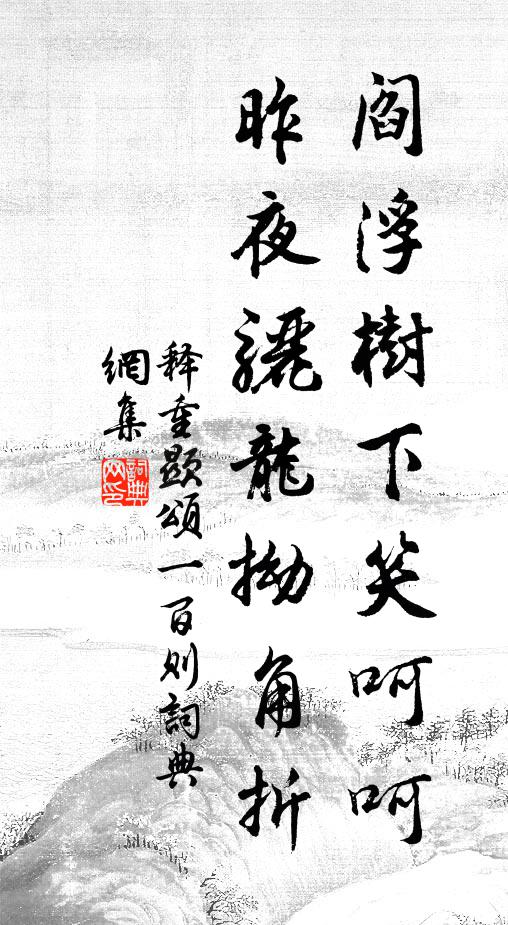 阎浮樹下笑呵呵
昨夜驪龍拗角折
释重顯頌一百则詞典
網集
詞典網印